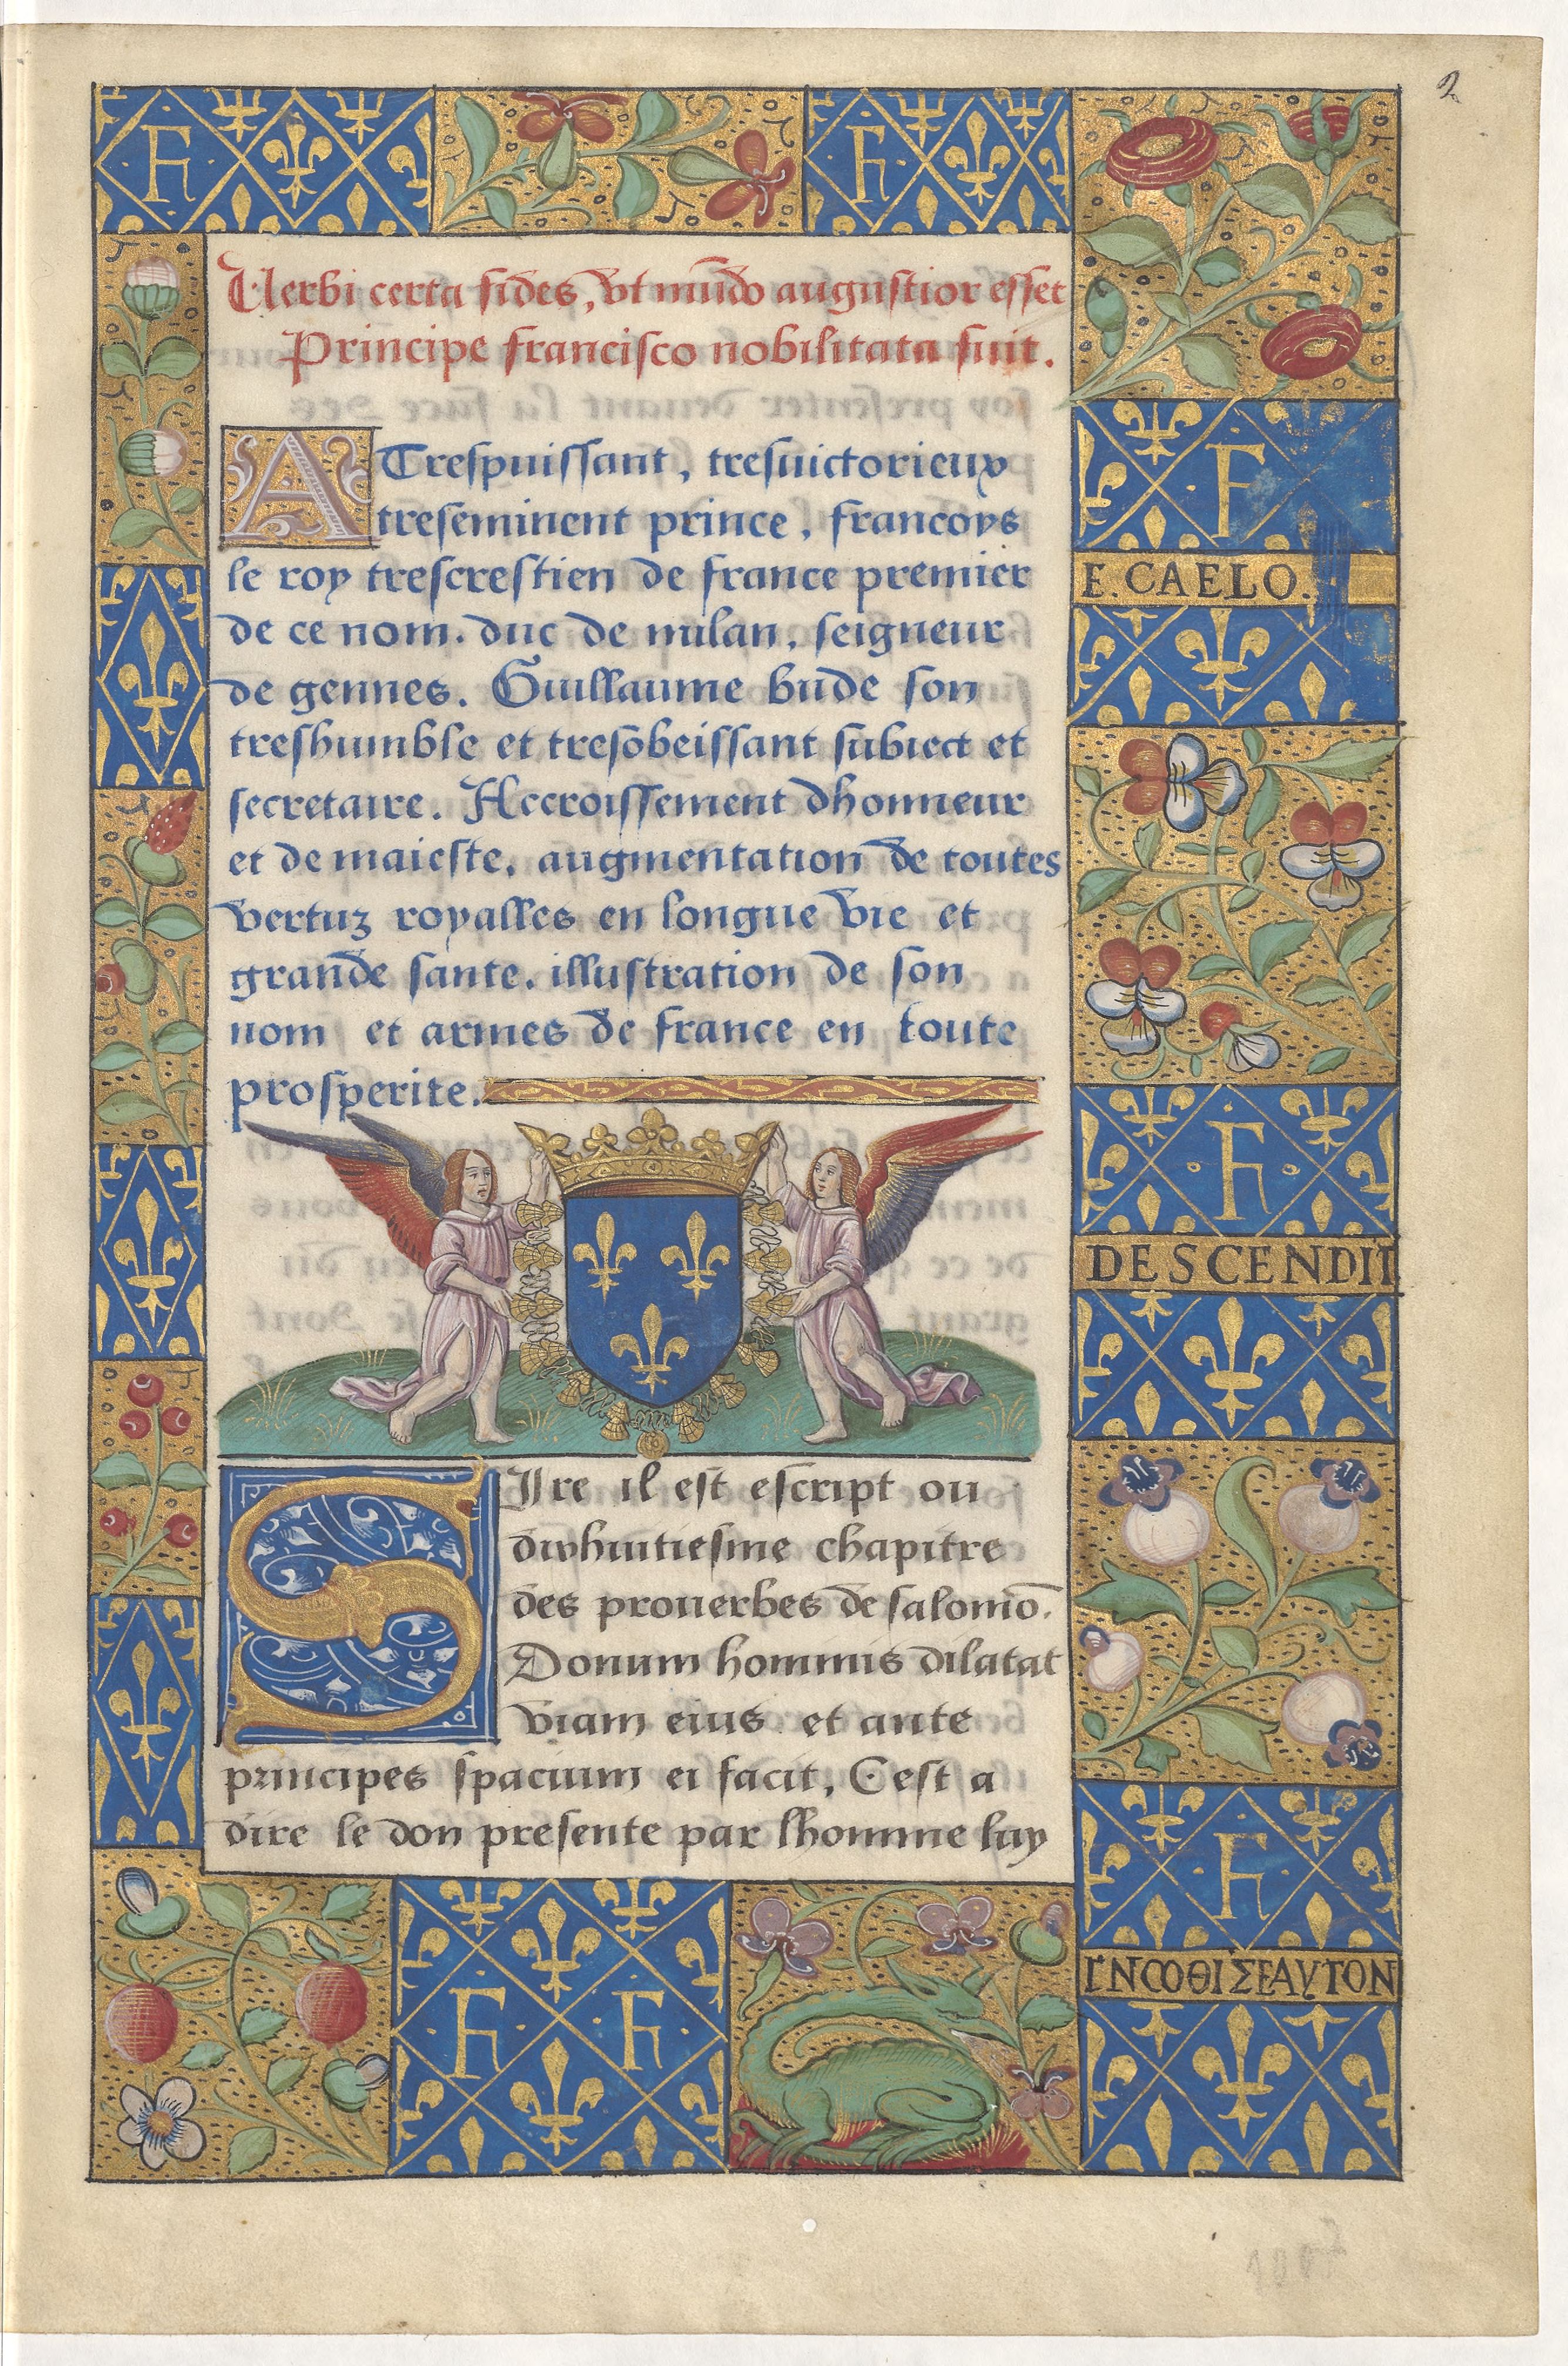 2
F F
Uerbi certa fides, vt mũdo augustior esset
Principe francisco nobilitata fuit.
A Trespuissant, tresuictorieux
treseminent prince, francoys
le roy trescrestien de france premier
de ce nom. duc de milan, seigneur
de gennes. Guillaume bude son
treshumble et tresobeissant subiect et
secretaire. Accroissement dhonneur
et de maieste, augmentation de toutes
vertuz royalles en longue vie et
grande sante. illustration de son
nom et armes de france en toute
prosperite.
SIre il est escript ou
dixhuitiesme chapitre
des prouerbes de salomõ.
Donum hominis dilatat
viam eius et ante
principes spacium ei facit, Cest a
dire le don presente par lhomme luy
F
E. CAELO.
F
DESCENDIT
F
ΓΝΩΘΙ ΣΕΑΥΤΟΝ
F F